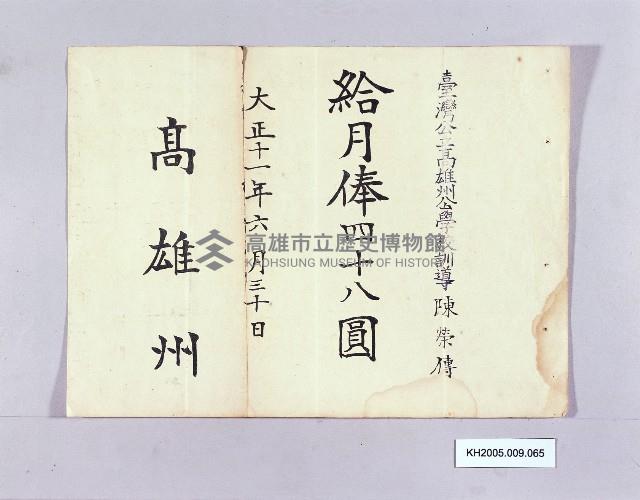 臺灣公立高雄州公學校訓導 陳榮傳
給月俸四十八圓
大正十一年六月三十日
高雄州
高雄市立歷史博物館
KAOHSIUNG MUSEUM OF HISTORY
KH2005.009.065